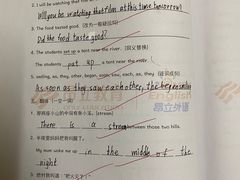 2. I will be watching that film
Will you be watching that film at this time tomorrow?
3. The food tasted good. (改为一般疑问句)
Did the food taste good?
4. The students set up a tent near the river. (同义替换)
The students put up a tent near the river.
5. smiling, as, they, other, began, saw, each, as, they (连词成句)
As soon as they saw each other, they began smiling
那两座小山之间有条小溪。(stream)
There is a stream between those two hills.
半夜里妈妈把我叫醒了。
My mum woke me up in the middle of the
night